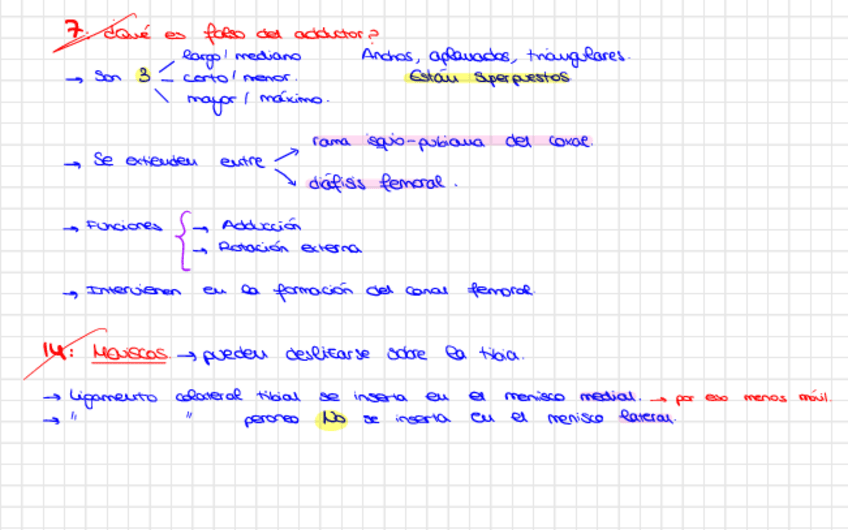 7. ¿Qué es falso del adductor?
→ Son 3 largo / mediano
corto / menor.
mayor / máximo.
Anchos, aplanados, triangulares.
Están superpuestos
→ Se extienden entre → rama isquio-pubiana del coxae.
→ diáfisis femoral.
→ Funciones → Adducción
→ Rotación externa
→ Intervienen en la formación del canal femoral.
14: Meniscos → pueden deslizarse sobre la tibia.
→ Ligamento colateral tibial se inserta en el menisco medial. → por eso menos móvil.
→ " " peroneo No se inserta en el menisco lateral.